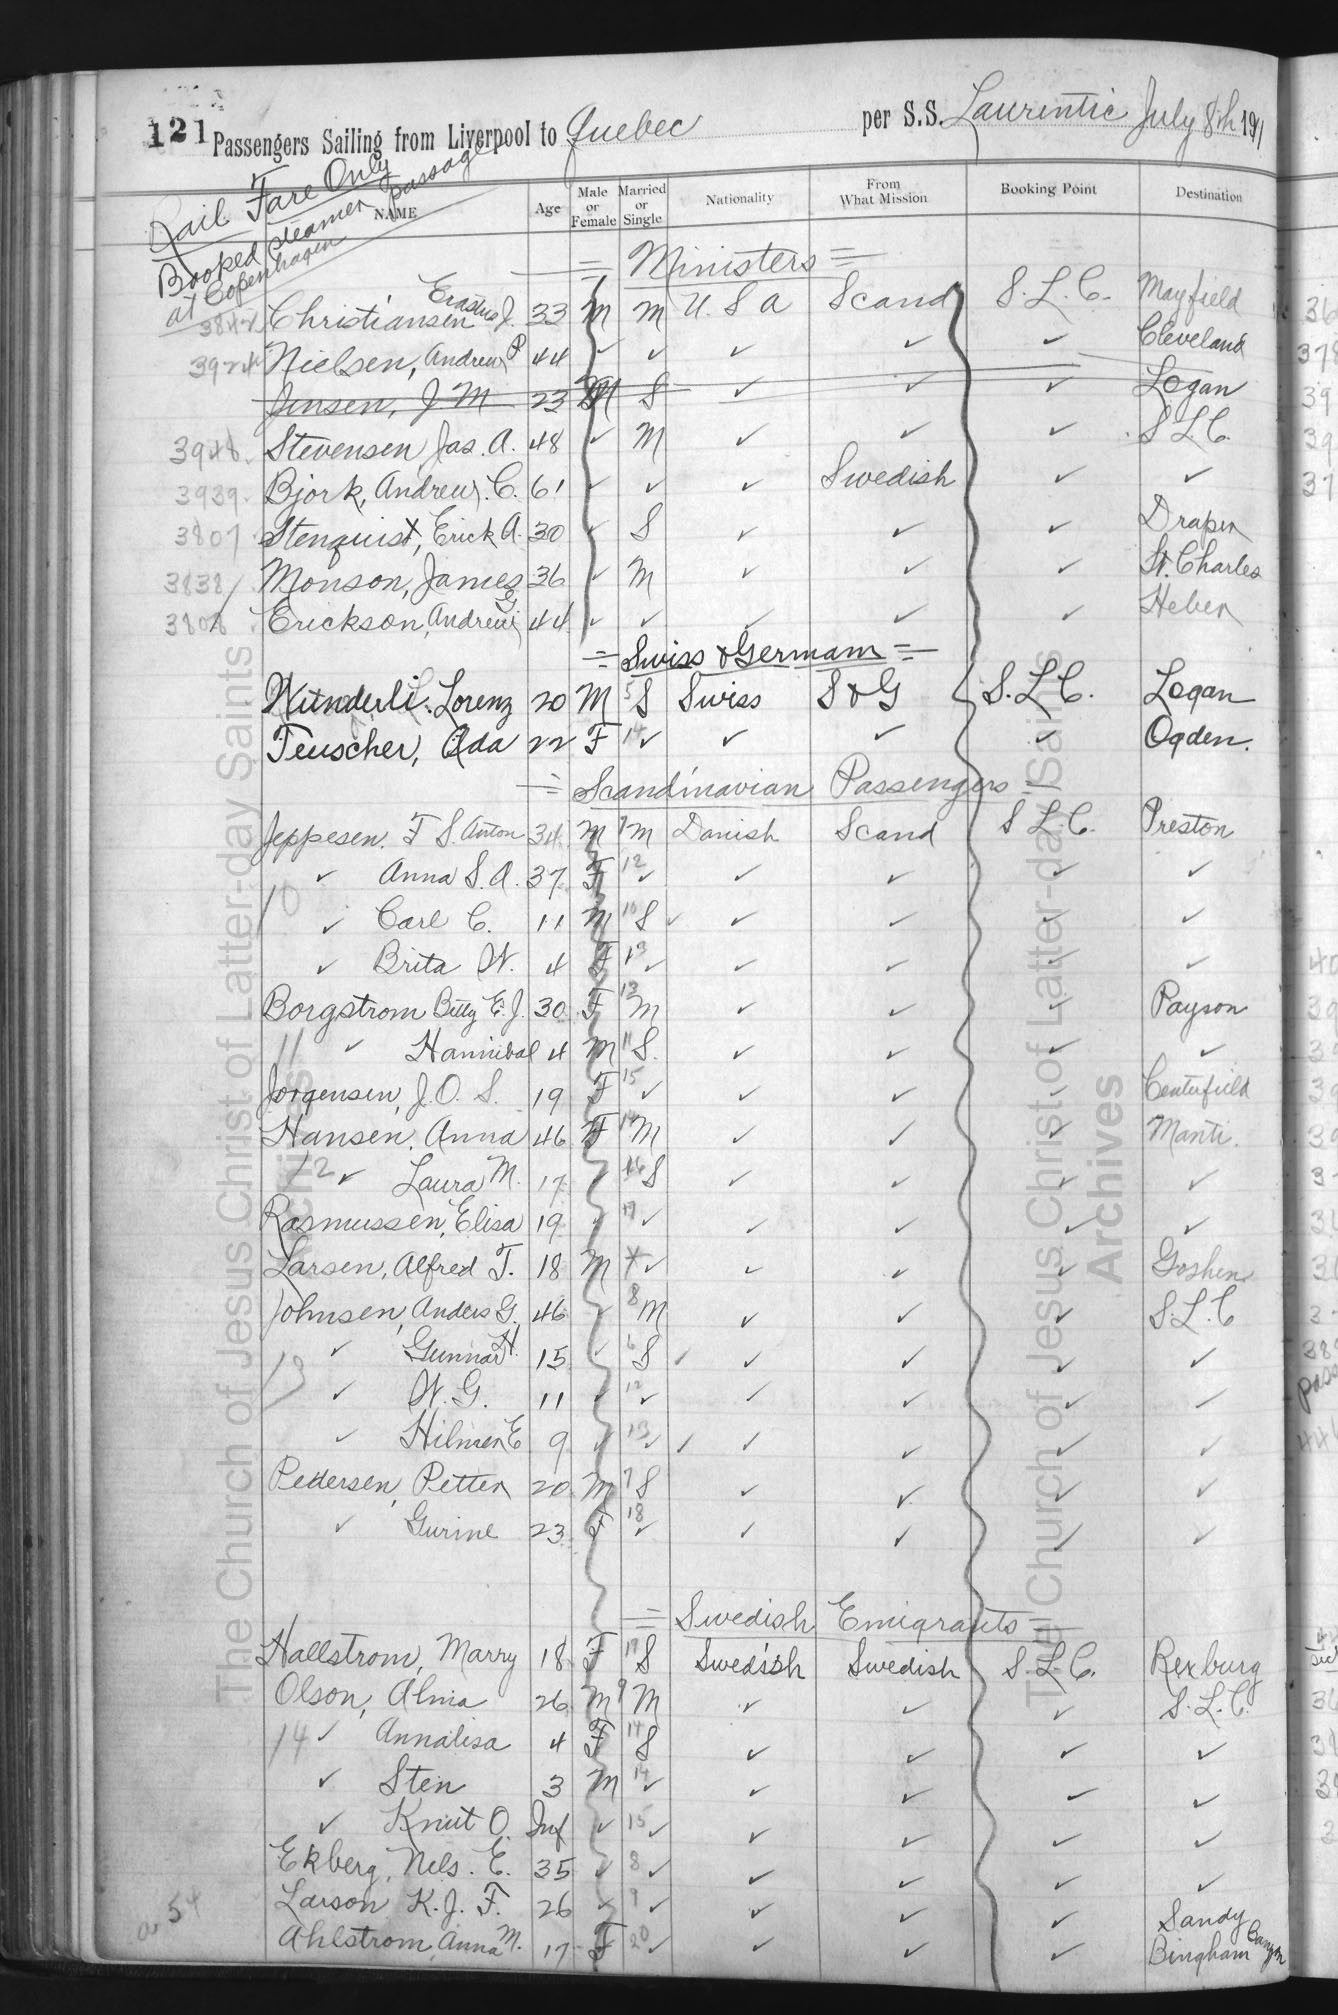 121 Passengers Sailing from Liverpool to Quebec per S.S. Laurentic July 8th 1911
Rail Fare Only
Booked steamer passage
at Copenhagen
NAME Age Male or Female Married or Single Nationality From What Mission Booking Point Destination
= Ministers =
3842 Christiansen Erastus J. 33 M M U.S.A Scand S.L.C. Mayfield
3924 Nielsen, Andrew P 44 ✓ ✓ ✓ ✓ ✓ Cleveland
Jensen, J M 23 M S ✓ ✓ ✓ Logan
3948. Stevensen, Jas. A. 48 ✓ M ✓ ✓ ✓ S.L.C.
3939. Bjork, Andrew C. 61 ✓ ✓ ✓ Swedish ✓ ✓
3807 Stenquist, Erick A. 30 ✓ S ✓ ✓ ✓ Draper
3838 Monson, James 36 ✓ M ✓ ✓ ✓ St. Charles
3808 Erickson, Andrew G 44 ✓ ✓ ✓ ✓ ✓ Heber
= Swiss & German =
Wunderli. Lorenz 20 M 5 S Swiss S & G S.L.C. Logan
Teuscher, Ada 22 F 14 ✓ ✓ ✓ ✓ Ogden.
= Scandinavian Passengers =
Jeppesen. F S. Anton 34 M 7 M Danish Scand S L C. Preston
✓ Anna S. A. 37 F 12 ✓ ✓ ✓ ✓ ✓
10 ✓ Carl C. 11 M 10 S ✓ ✓ ✓ ✓ ✓
✓ Brita W. 4 F 13 ✓ ✓ ✓ ✓ ✓
Borgstrom Betty E. J. 30 F 13 M ✓ ✓ ✓ Payson
11 ✓ Hannibal 4 M 11 S. ✓ ✓ ✓ ✓
Jorgensen, J. O. S. 19 F 15 ✓ ✓ ✓ ✓ Centerfield
Hansen, Anna 46 F 14 M ✓ ✓ ✓ Manti.
12 ✓ Laura M. 17 ✓ 16 S ✓ ✓ ✓ ✓
Rasmussen, Elisa 19 ✓ 17 ✓ ✓ ✓ ✓ ✓
Larsen, Alfred T. 18 M ✓ ✓ ✓ ✓ Goshen
Johnsen, Anders G. 46 ✓ 8 M ✓ ✓ ✓ S.L.C
✓ Gunnar H. 15 ✓ 6 S ✓ ✓ ✓ ✓ ✓
13 ✓ W. G. 11 ✓ 12 ✓ ✓ ✓ ✓ ✓
✓ Hilmer E 9 ✓ 13 ✓ ✓ ✓ ✓ ✓ ✓
Pedersen, Petter 20 M 7 S ✓ ✓ ✓ ✓
✓ Gurine 23 F 18 ✓ ✓ ✓ ✓ ✓
= Swedish Emigrants =
Hallstrom, Marry 18 F 19 S Swedish Swedish S.L.C. Rexburg
Olson, Alma 26 M 9 M ✓ ✓ ✓ S.L.C.
14 ✓ Annalisa 4 F 14 S ✓ ✓ ✓ ✓
✓ Sten 3 M 14 ✓ ✓ ✓ ✓ ✓
✓ Knut O. Inf ✓ 15 ✓ ✓ ✓ ✓ ✓
Ekberg, Nels. E. 35 ✓ 8 ✓ ✓ ✓ ✓ ✓
54 Larson K. J. F. 26 ✓ 9 ✓ ✓ ✓ ✓ Sandy
Ahlstrom, Anna M. 17 F 20 ✓ ✓ ✓ ✓ Bingham Canyon
The Church of Jesus Christ of Latter-day Saints
Archives
The Church of Jesus Christ of Latter-day Saints
Archives